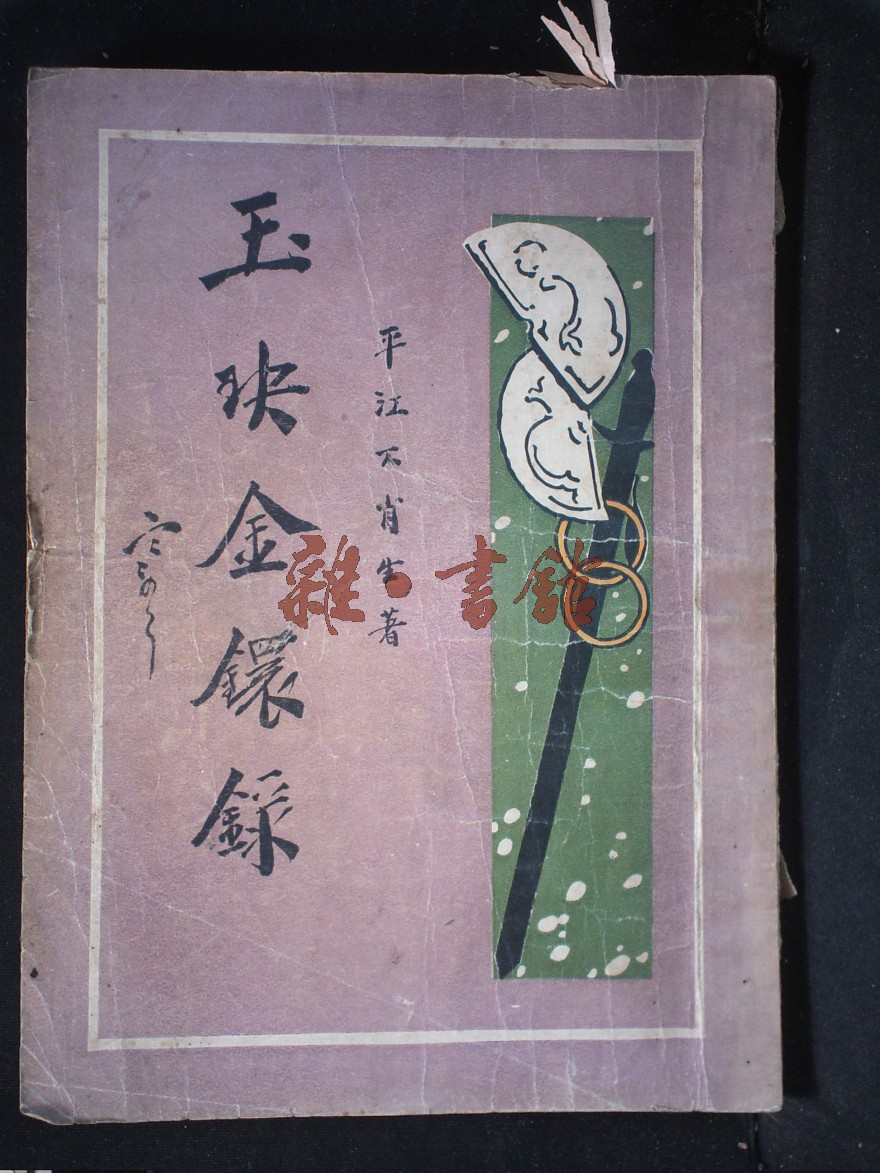 平江不肖生著
玉玦金鐶録
雜·書館